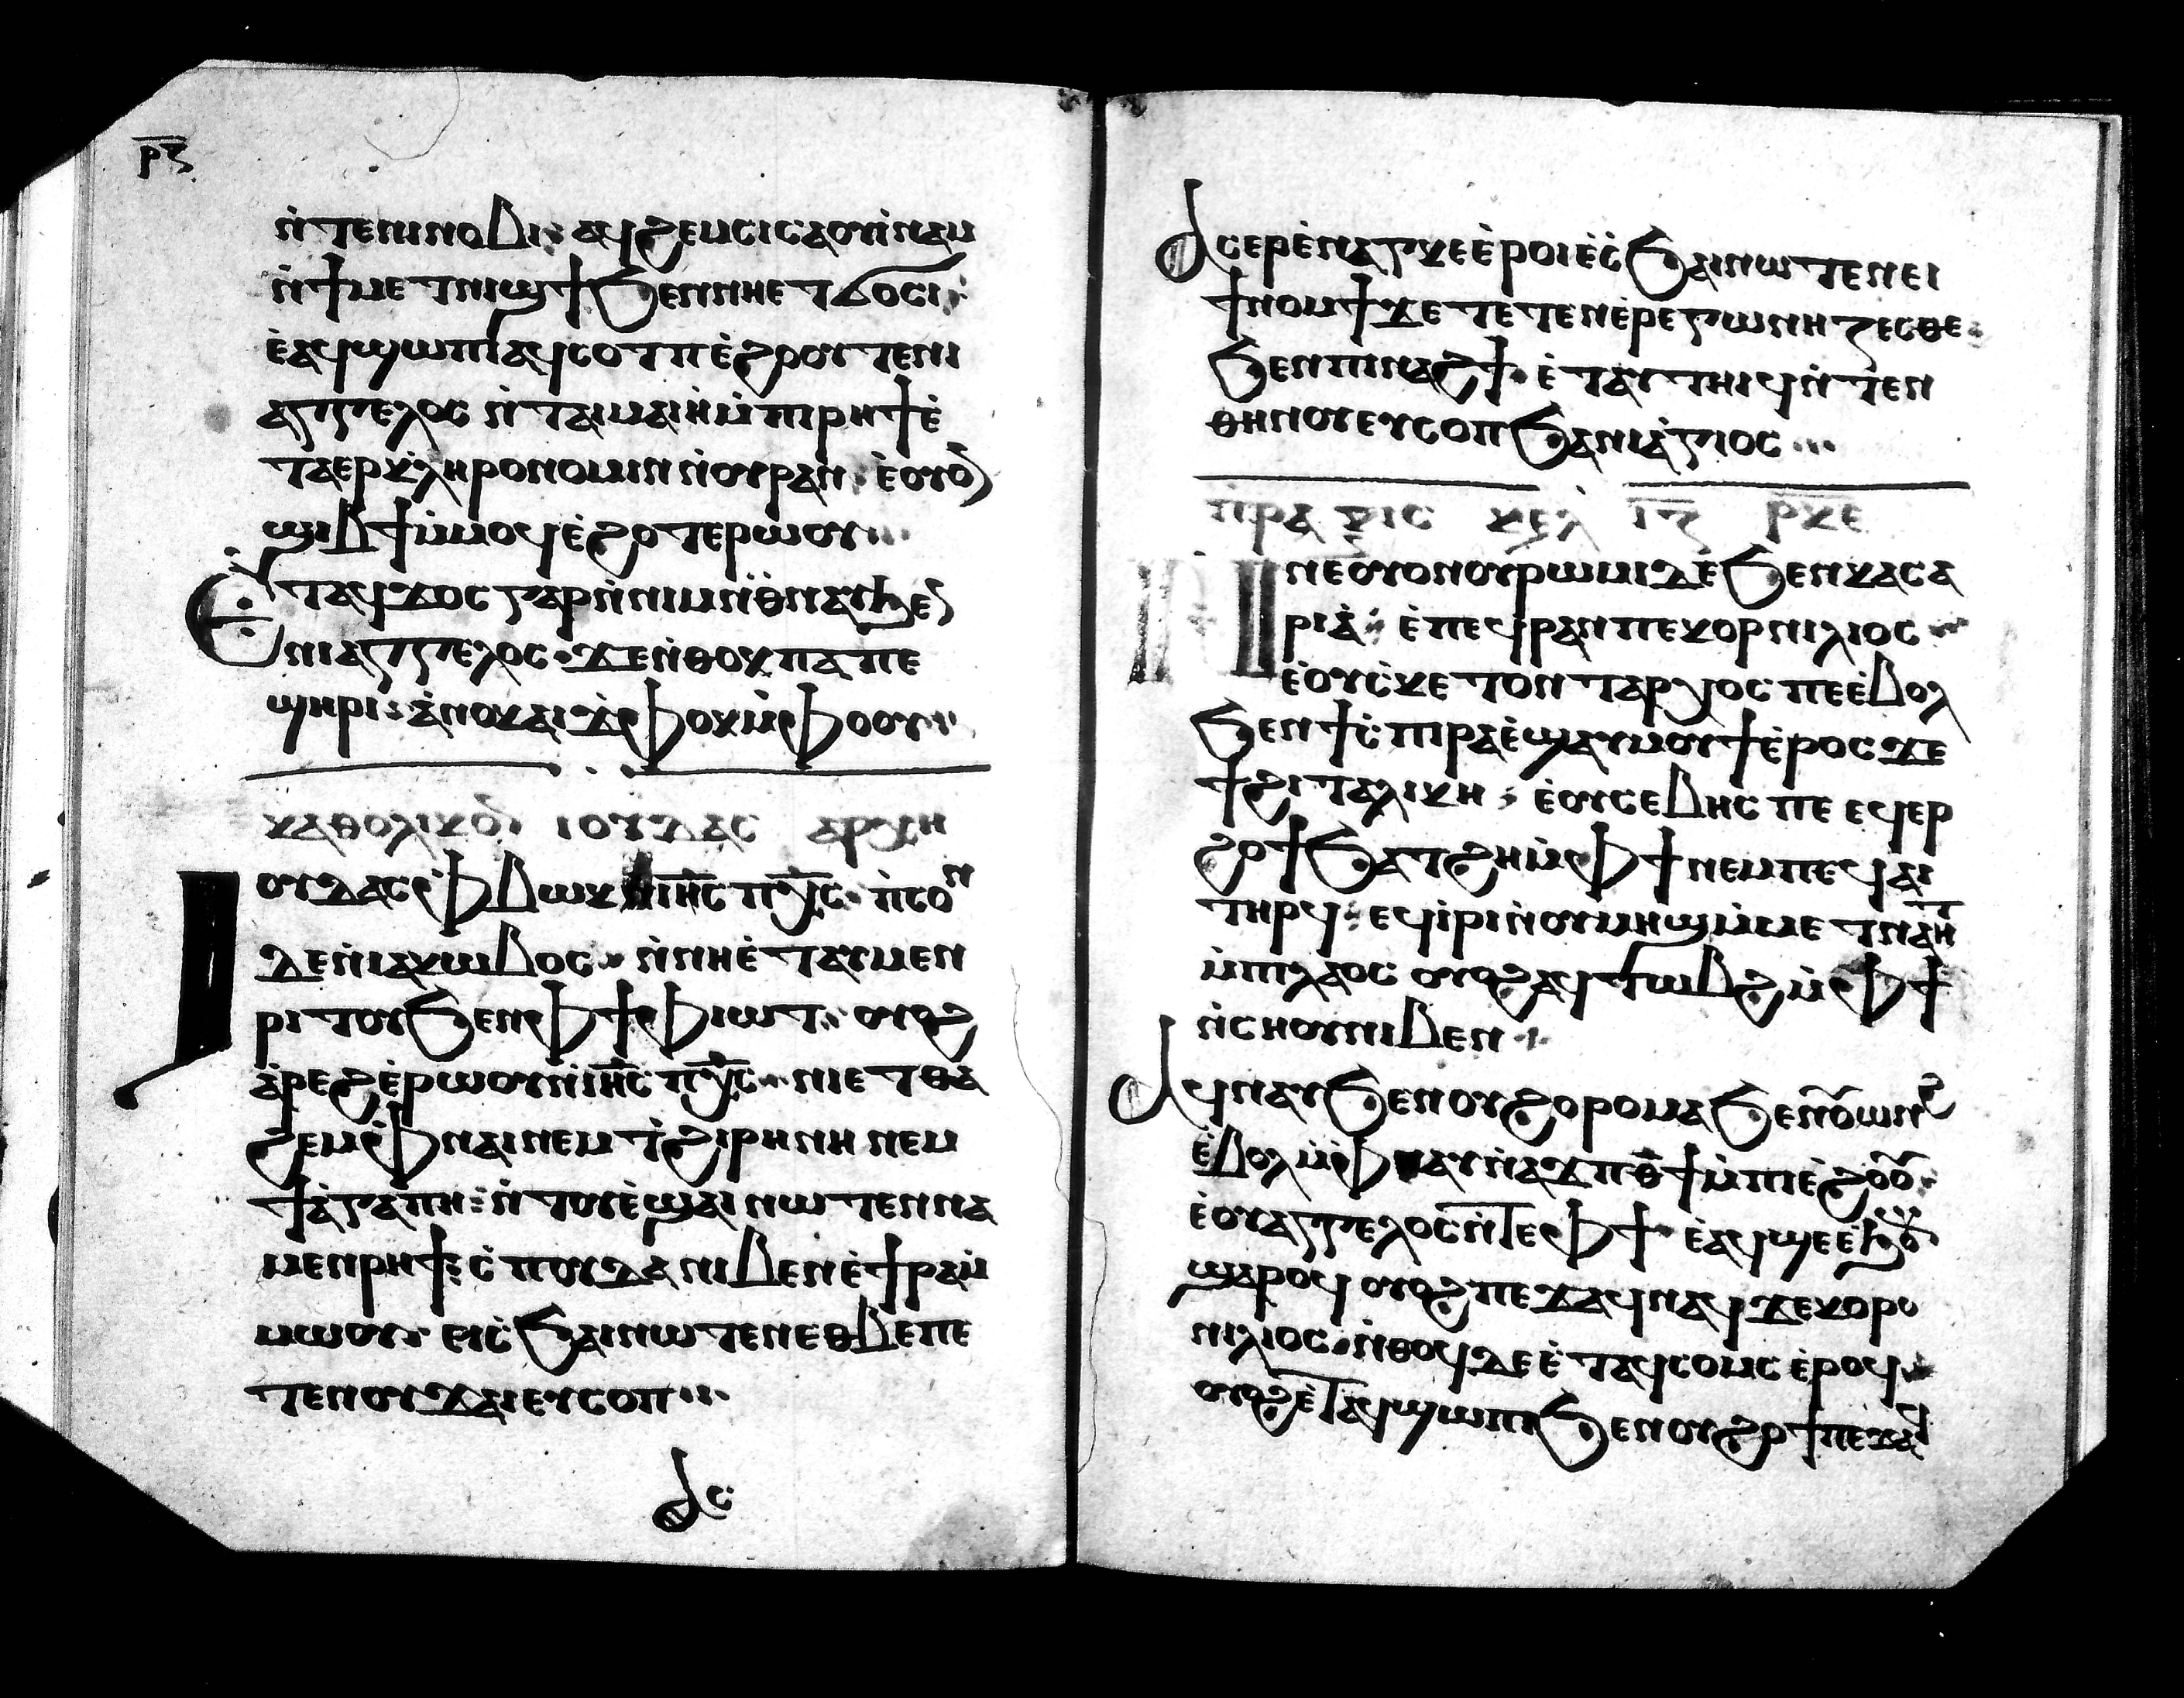 ⲣⲍ
ⲛ̀ⲧⲉⲛⲓⲛⲟⲃⲓ: ⲁϥϩⲉⲙⲥⲓⲥⲁⲟⲩⲓ̀ⲛⲁⲙ
ⲛ̀ϯⲙⲉⲧⲛⲓϣϯϧⲉⲛⲛⲏⲉⲧϭⲟⲥⲓ:
ⲉ̀ⲁϥϣⲱⲡⲓⲁϥⲥⲟⲧⲡⲉ̀ϩⲣⲟⲧⲉⲛⲓ
ⲁⲅⲅⲉⲗⲟⲥ ⲛ̀ⲧⲁⲓⲙⲁⲓⲏ̀ⲙ̀ⲡⲣⲏϯⲉ̀
ⲧⲁⲉⲣⲕ̀ⲗⲏⲣⲟⲛⲟⲙⲓⲛⲛ̀ⲟⲩⲣⲁⲛ: ⲉ̀ⲟⲩⲟ
ϣⲓⲃϯⲙ̀ⲙⲟϥⲉ̀ϩⲟⲧⲉⲣⲱⲟⲩ...
Ⲉⲧⲁϥϫⲟⲥⲅⲁⲣⲛ̀ⲛⲓⲙⲛ̀ⲑⲛⲁⲩϧⲉ
ⲛⲓⲁⲅⲅⲉⲗⲟⲥ: ϫⲉⲛ̀ⲑⲟⲕⲡⲁⲡⲉ
ϣⲏⲣⲓ: ⲁ̀ⲛⲟⲕⲁⲓϫⲫⲟⲕⲙ̀ⲫⲟⲟⲩ
ⲕⲁⲑⲟⲗⲓⲕⲟⲛ ⲓⲟⲩⲇⲁⲥ ⲁⲣⲭⲏ
Ⲓⲟⲩⲇⲁⲥⲫ̀ⲃⲱⲕⲛ̀ⲓⲏ̅ⲥ̅ ⲡⲭ̅ⲥ̅: ⲡ̀ⲥⲟⲛ
ⲇⲉⲛ̀ⲓⲁⲕⲱⲃⲟⲥ: ⲛ̀ⲛⲏⲉ̀ⲧⲁⲩⲙⲉⲛ
ⲣⲓⲧⲟⲩϧⲉⲛⲫϯⲫⲓⲱⲧ: ⲟⲩⲟϩ
ⲁ̀ⲣⲉϩⲉ̀ⲣⲱⲟⲩⲛ̀ⲓⲏ̅ⲥ̅ ⲡⲭ̅ⲥ̅: ⲛⲓⲉⲧⲑⲁ
ϩⲉⲙ ⲫⲛⲁⲓⲛⲉⲙⲧ̀ϩⲓⲣⲏⲛⲏ ⲛⲉⲙ
ϯⲁ̀ⲅⲁⲡⲏ: ⲛ̀ⲧⲟⲩⲉ̀ϣⲁⲓⲛⲱⲧⲉⲛⲛⲁ
ⲙⲉⲛⲣⲏϯ: ⲥ̀ⲡⲟⲩⲇⲁⲛⲓⲃⲉⲛⲉ̀ϯⲣⲁⲙ̀
ⲙⲱⲟⲩ: ⲉⲓⲥ̀ϧⲁⲓⲛⲱⲧⲉⲛⲉⲑⲃⲉⲡⲉ
ⲧⲉⲛⲟⲩϫⲁⲓⲉⲩⲥⲟⲡ...
Ⲁⲥ
Ⲁⲥⲉⲣⲉ̀ⲛⲁⲅⲕⲉⲉ̀ⲣⲟⲓⲉ̀ⲥ̀ϧⲁⲓⲛⲱⲧⲉⲛⲉⲓ
ϯⲛⲟⲙϯϫⲉⲧⲉⲧⲉⲛⲉ̀ⲣⲉⲅⲱⲛⲏⲍⲉⲥⲑⲉ:
ϧⲉⲛⲡⲓⲛⲁϩϯ: ⲉ̀ⲧⲁⲩⲧⲏⲓϥⲛ̀ⲧⲉⲛ
ⲑⲏⲛⲟⲩⲉⲩⲥⲟⲡϧⲁⲛⲓⲁ̀ⲅⲓⲟⲥ...
ⲡⲣⲁⲝⲓⲥ ⲕⲉⲗ ⲓⲍ ⲣⲕⲉ
Ⲛⲉⲟⲩⲟⲛⲟⲩⲣⲱⲙⲓⲇⲉϧⲉⲛⲕⲁⲥⲁ
ⲣⲓⲁ̀: ⲉ̀ⲡⲉϥⲣⲁⲛⲡⲉⲕⲟⲣⲛⲓⲗⲓⲟⲥ
ⲉ̀ⲟⲩⲥ̀ⲕⲉⲧⲟⲛⲧⲁⲣⲭⲟⲥ ⲡⲉⲉ̀ⲃⲟⲗ
ϧⲉⲛϯⲥ̀ⲡⲣⲁⲉ̀ϣⲁⲩⲙⲟⲩϯⲉ̀ⲣⲟⲥ ϫⲉ
ϯϩⲓⲧⲁⲗⲓⲕⲏ: ⲉ̀ⲟⲩⲥⲉⲃⲏⲥ ⲡⲉ ⲉϥⲉⲣ
ϩⲟϯϧⲁⲧϩⲏⲙ̀ⲫϯⲛⲉⲙⲡⲉϥⲏⲓ
ⲧⲏⲣϥ: ⲉϥⲓ̀ⲣⲓⲛ̀ⲟⲩⲙⲏϣⲙ̀ⲙⲉⲧⲛⲁⲏⲧ
ⲙ̀ⲡⲗⲁⲟⲥ ⲟⲩⲟϩⲁϥⲧⲱⲃϩⲙ̀ⲫϯ
ⲛ̀ⲥⲏⲟⲩⲛⲓⲃⲉⲛ
Ⲁϥⲛⲁⲩϧⲉⲛⲟⲩϩⲟⲣⲟⲙⲁϧⲉⲛⲟⲩⲱⲛϩ
ⲉ̀ⲃⲟⲗⲙ̀ⲫⲛⲁⲩⲛ̀ⲁϫⲡⲑ̅ϯⲙ̀ⲡⲓⲉ̀ϩⲟⲟⲩ
ⲉ̀ⲟⲩⲁⲅⲅⲉⲗⲟⲥⲛ̀ⲧⲉⲫϯ: ⲉ̀ⲁϥϣⲉⲉ̀ϧⲟⲩⲛ
ϣⲁⲣⲟϥ ⲟⲩⲟϩⲡⲉϫⲁϥⲛⲁϥϫⲉⲕⲟⲣⲟ
ⲛⲓⲗⲓⲟⲥ: ⲛ̀ⲑⲟϥⲇⲉⲉ̀ⲧⲁϥⲥⲟⲙⲥ ⲉ̀ⲣⲟϥ
ⲟⲩⲟϩⲉ̀ⲧⲁϥϣⲱⲡⲓϧⲉⲛⲟⲩϩⲟϯⲡⲉϫⲁϥ